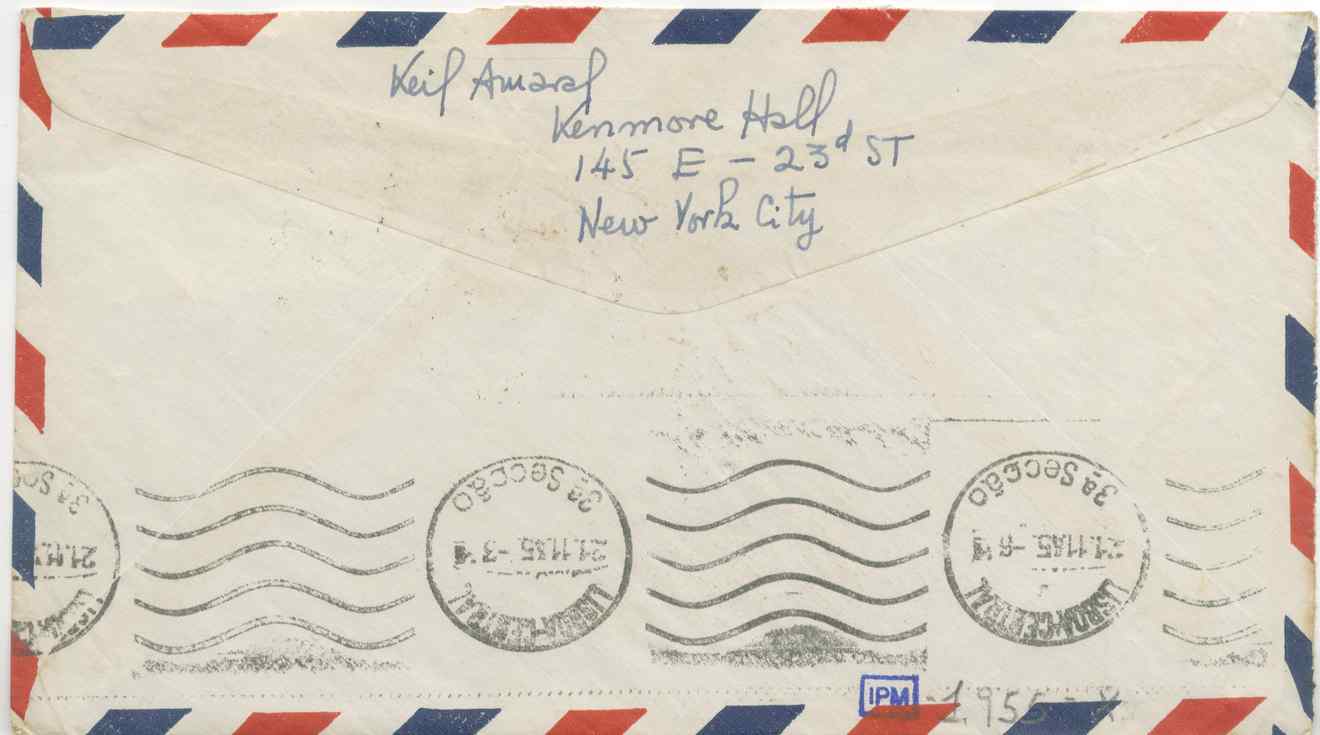 Keil Amaral
Kenmore Hall
145 E - 23d ST
New York City
3ª SECÇÃO
LISBOA-CENTRAL
3ª SECÇÃO
21.11.55
LISBOA-CENTRAL
3ª SECÇÃO
21.11.55
LISBOA-CENTRAL
IPM
-1955-